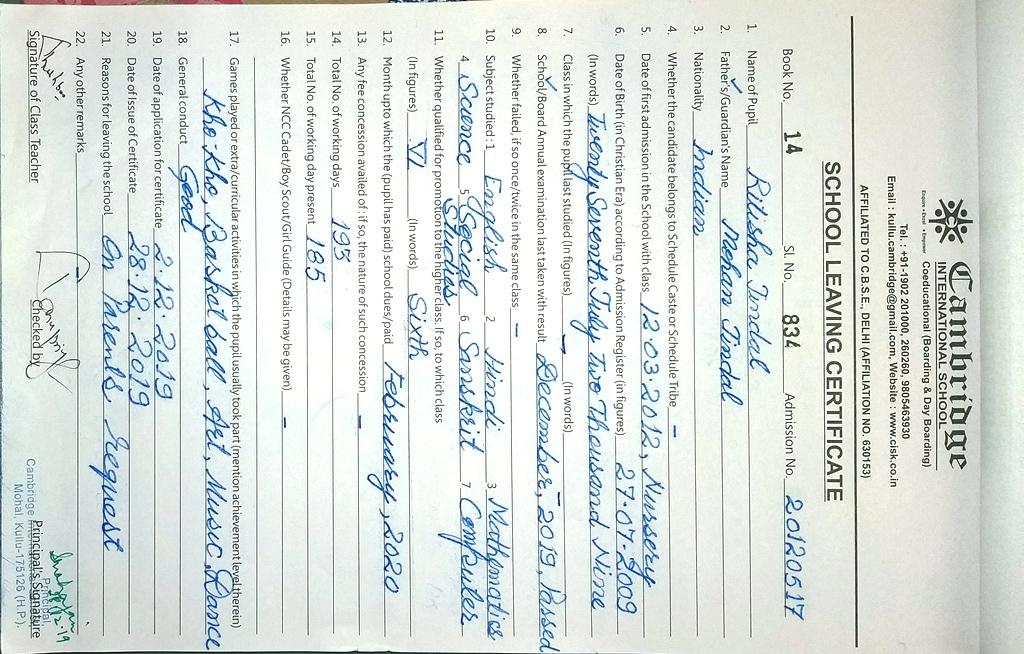 Cambridge
INTERNATIONAL SCHOOL
Enquire • Excel • Empower
Coeducational (Boarding & Day Boarding)
Tel. : +91-1902 201000, 260260, 9805463930
Email : kullu.cambridge@gmail.com, Website : www.cisk.co.in
AFFILIATED TO C.B.S.E., DELHI (AFFILIATION NO. 630153)
SCHOOL LEAVING CERTIFICATE
Book No. 14 Sl. No. 834 Admission No. 20120517
1. Name of Pupil Ritisha Jindal
2. Father's/Guardian's Name Mohan Jindal
3. Nationality Indian
4. Whether the candidate belongs to Schedule Caste or Schedule Tribe -
5. Date of first admission in the School with class 12.03.2012, Nursery
6. Date of Birth (in Christian Era) according to Admission Register (in figures) 27-07-2009
(In words) Twenty Seventh July two Thousand Nine
7. Class in which the pupil last studied (In figures) - (In words) -
8. School/Board Annual examination last taken with result December, 2019, Passed
9. Whether failed, if so once/twice in the same class -
10. Subject studied : 1 English 2 Hindi 3 Mathematics
4 Science 5 Social Studies 6 Sanskrit 7 Computer
11. Whether qualified for promotion to the higher class. If so, to which class
(In figures) VI (In words) Sixth
12. Month upto which the (pupil has paid) school dues/paid February, 2020
13. Any fee concession availed of : if so, the nature of such concession -
14. Total No. of working days 195
15. Total No. of working day present 185
16. Whether NCC Cadet/Boy Scout/Girl Guide (Details may be given) -
17. Games played or extra/curricular activities in which the pupil usually took part (mention achievement level therein)
Kho-Kho, Basket ball, Art, Music, Dance
18. General conduct Good
19. Date of application for certificate 2.12.2019
20. Date of Issue of Certificate 28.12.2019
21. Reasons for leaving the school On Parents Request
22. Any other remarks
Signature of Class Teacher Checked by Principal's Signature
Principal,
Cambridge
Mohal, Kullu-175126 (H.P.)